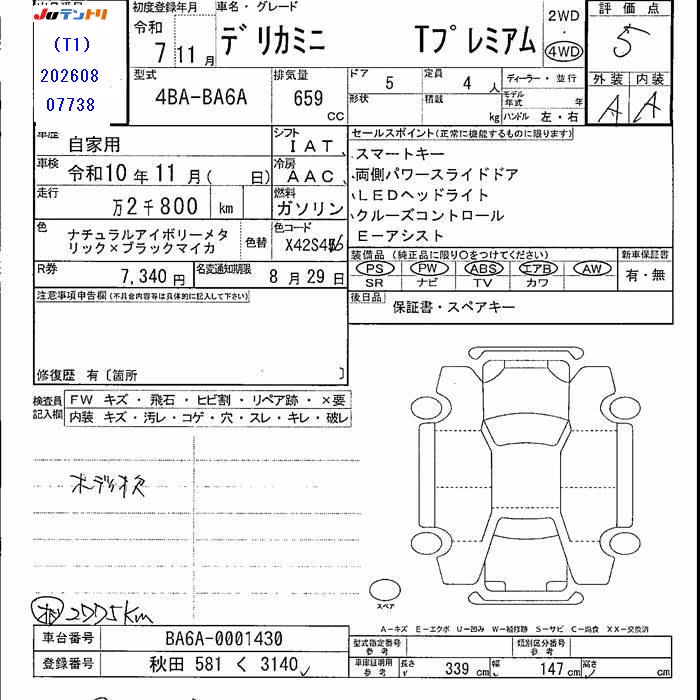 Juテントリ
(T1)
202608
07738
初度登録年月
令和
7 11 月
車名・グレード
デリカミニ Tプレミアム
2WD
・
4WD
評価点
5
外装 内装
A A
型式
4BA-BA6A
排気量
659
CC
ドア
5
定員
4 人
ディーラー・並行
形状
積載
kg
モデル年式 年
ハンドル 左・右
車歴
自家用
シフト
IAT
車検
令和10 年 11 月( 日)
冷房
AAC
走行
万 2 千 800 km
燃料
ガソリン
色
ナチュラルアイボリーメタ
リック×ブラックマイカ
色替
色コード
R券
7,340 円
名変通知期限
8 月 29 日
セールスポイント(正常に機能するものに限ります)
スマートキー
両側パワースライドドア
LEDヘッドライト
クルーズコントロール
E-アシスト
装備品 (純正品に限り○をつけてください)
新車保証書
PS PW ABS エアB AW
SR ナビ TV カワ
有・無
後日品
保証書・スペアキー
注意事項申告欄(不具合内容等は具体的に記入して下さい)
修復歴 有〔箇所 〕
検査員
記入欄
FW キズ ・ 飛石 ・ ヒビ割 ・ リペア跡 ・ ×要
内装 キズ・汚レ・コゲ・穴・スレ・キレ・破レ
2775km
スペア
A-キズ E-エクボ U-凹み W-補修跡 S-サビ C-腐食 XX-交換済
車台番号
BA6A-0001430
登録番号
秋田 581 く 3140
型式指定番号
参考
類別区分番号
参考
車庫証明用
参考
長さ
339 cm
幅
147 cm
高さ
cm